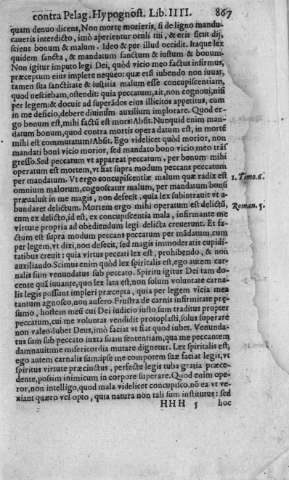 contra Pelag. Hypognost. Lib. IIII. 867
quam denuo dicens, Non morte moriemini, si de ligno mandu-
caueritis interdicto, imò aperientur oculi tui, & eris sicut dij,
sciens bonum & malum. Ideo & per illud occidit. Itaque lex
quidem sancta, & mandatum sanctum & iustum & bonum.
Non igitur imputo legi Dei, quòd vicio meo factus infirmus,
præceptum eius implere nequeo: quæ etsi subendo non iuuat,
tamen sua sanctitate & iustitia malum esse concupiscentiam,
quod nesciebam, ostendit: quia peccatum, ait, non cognoui, nisi
per legem: & docuit ad superádos eius illicitos appetitus, cum
in me deficio, debere diuinum auxilium implorare. Quod er-
go bonum est, mihi factū est mors? Absit. Nunquid enim man-
datum bonum, quod contra mortis opera datum est, in morte
mihi est commutatum? Absit. Ego videlicet quòd morior, non
mandati boni vicio morior, sed mandato bono vicio meo trāf
gresso. Sed peccatum vt appareat peccatum, per bonum mihi
operatum est mortem, vt fiat supra modum peccans peccatum
per mandatum. Vt ergo concupiscentiæ malum quæ radix est 1. Timo. 6.
omnium malorum, cognoscatur malum, per mandatum boni
præualuit in me magis, non defecit, quia lex subintrauit vt a-
bundaret delictum. Mortem ergo mihi operatum est delictū, Roman. 5.
cum ex delicto, id est, ex concupiscentia mala, infirmante me
virtute propria ad obediendum legi delicta creuerunt. Et fa-
ctum est supra modum peccans peccatum per mādatum, cum
per legem, vt dixi, non defecit, sed magis immoderatis cupidi-
tatibus creuit: quia virtus peccati lex est, prohibendo, & non
auxiliando. Scimus enim quòd lex spiritalis est, ego autem car-
nalis sum venundatus sub peccato. Spiritu igitur Dei tam do-
cente quàm iuuante, quo lex lata est, non solum voluntate carna-
lis legis possunt impleri præcepta, quia per legem vicia mea
tantum agnosco, non aufero. Frustra de carnis infirmitate præ-
sumo, hostem meum cui Dei iudicio iusto sum traditus propter
peccatum, cui me voluntas vendidit protoplasti, solus superare
non valeo: iubet Deus, imò faciat vt fiat quod iubet. Venunda-
tus sum sub peccato iuxta suam sententiam, qua me peccantem
damnauit: me misericordia mutare dignetur. Lex spiritalis est,
ego autem carnalis sum: ipse me comporem suæ faciat legis, vt
spiritus virtute præcinctus, perfecte legis tuba gratia præce-
dente, possim inimicum in corpore superare. Quod enim ope-
ror, non intelligo, quod mala videlicet concupisco, nō ea vt ve-
niant quæro vel opto, quia natura non tali sum institutus: sed
HHH 5 hoc